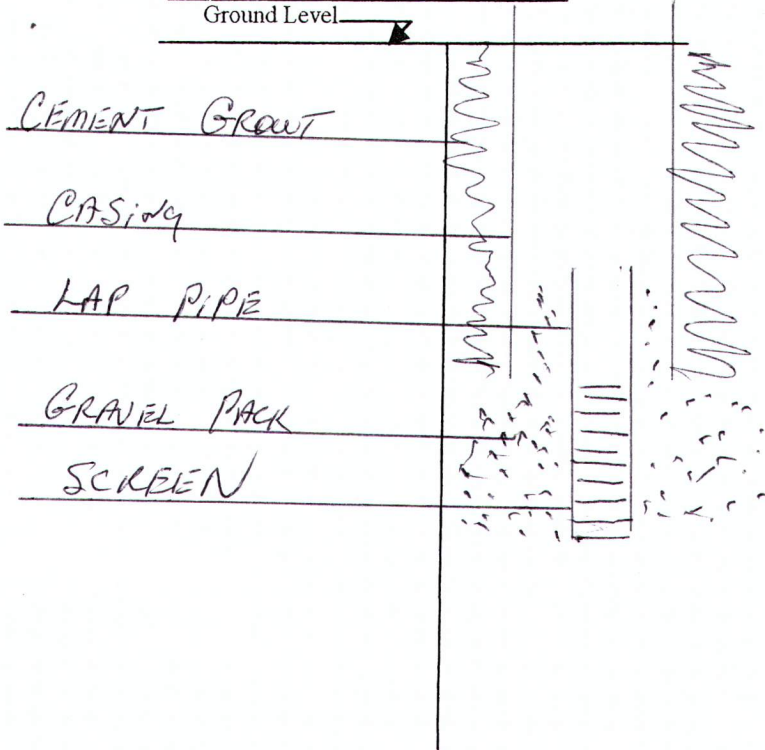 Ground Level
CEMENT GROUT
CASiNG
LAP PiPE
GRAVEL PACK
SCREEN